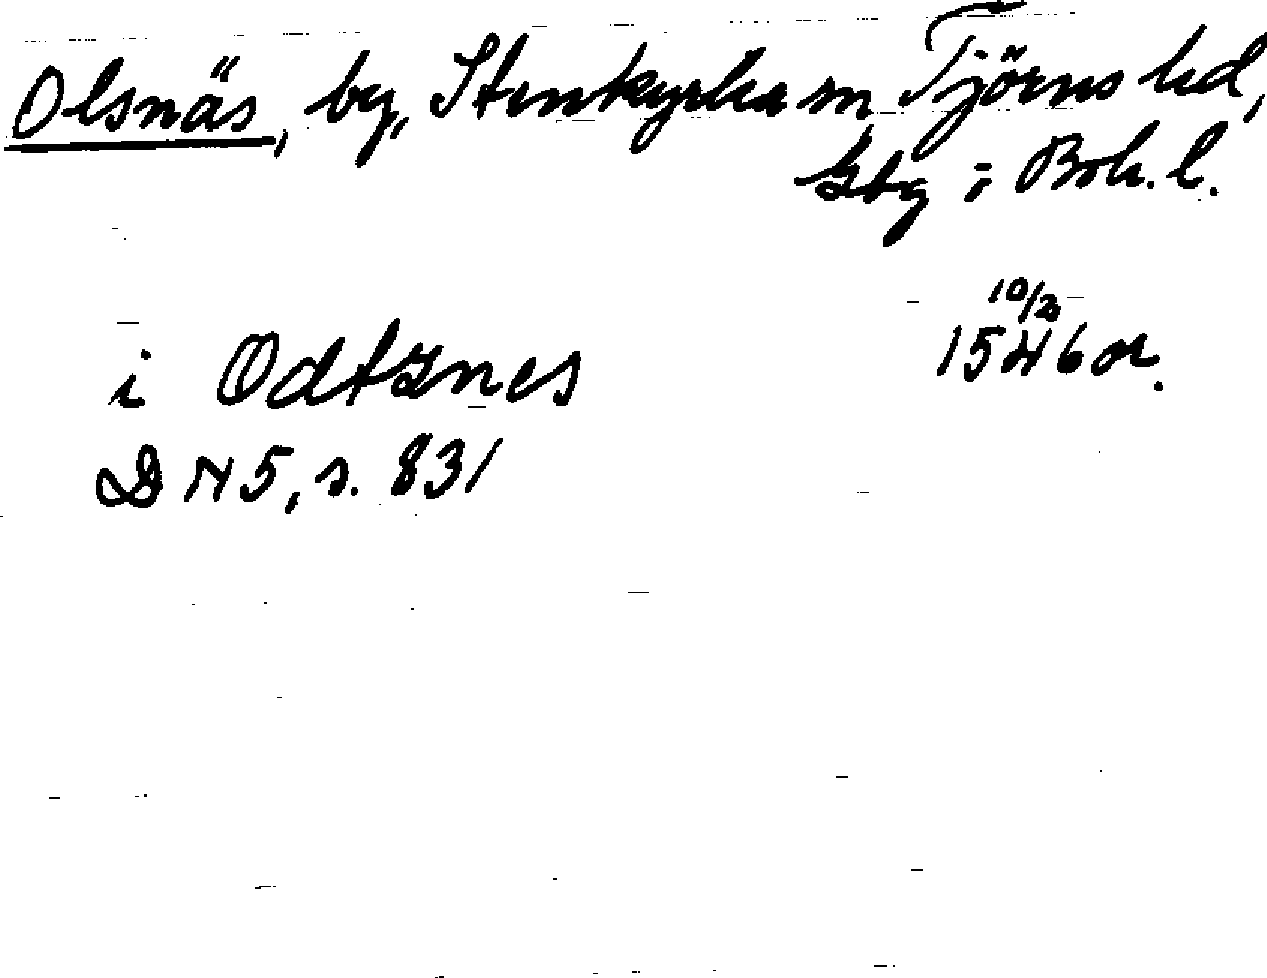 Olsnäs, by, Stenkyrka sn Tjörns hd,
Gbg; Boh. l.
i Odtznes
10/2
1546 or.
DN 5, s. 831